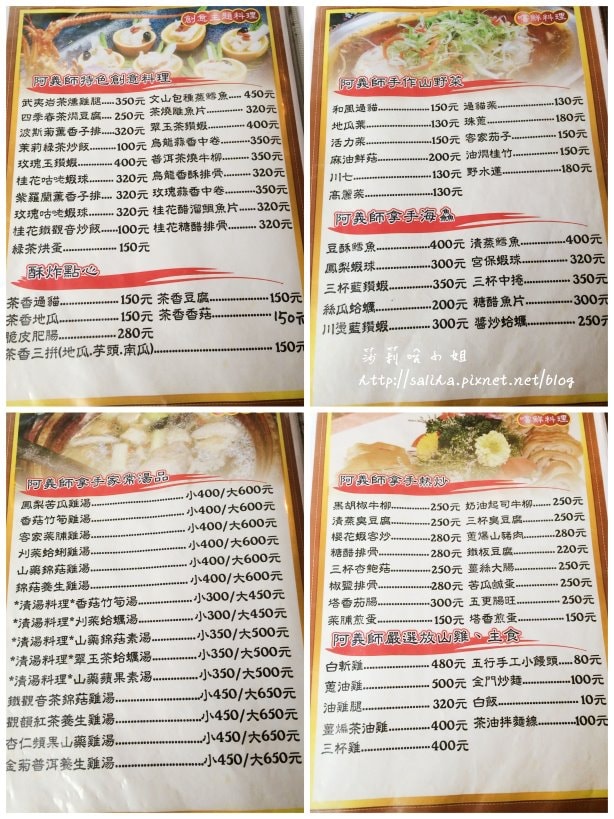 創意主題料理
阿義師特色創意料理
武夷岩茶燻雞腿.....350元 文山包種蒸鱈魚.....450元
四季春茶燜豆腐.....250元 茶燒雕魚片.....320元
波斯菊薰香子排.....320元 翠玉茶鑽蝦.....400元
茉莉綠茶炒飯.....100元 烏龍蒜香中卷.....350元
玫瑰玉鑽蝦.....400元 普洱茶燒牛柳.....350元
桂花咕咾蝦球.....320元 烏龍香酥排骨.....320元
紫羅蘭薰香子排.....320元 玫瑰蒜香中卷.....350元
玫瑰咕咾蝦球.....320元 桂花醋溜鯛魚片.....320元
桂花鐵觀音炒飯.....100元 桂花糖醋排骨.....320元
綠茶烘蛋.....150元
酥炸點心
茶香過貓.....150元 茶香豆腐.....150元
茶香地瓜.....150元 茶香香菇.....150元
脆皮肥腸.....280元
茶香三拼(地瓜.芋頭.南瓜).....150元
嚐鮮料理
阿義師手作山野菜
和風過貓.....150元 過貓菜.....130元
地瓜葉.....130元 珠蔥.....180元
活力菜.....150元 客家茄子.....150元
麻油鮮菇.....200元 油燜桂竹.....150元
川七.....130元 野水蓮.....180元
高麗菜.....130元
阿義師拿手海鱻
豆酥鱈魚.....400元 清蒸鱈魚.....400元
鳳梨蝦球.....300元 宮保蝦球.....300元
三杯藍鑽蝦.....350元 三杯中捲.....350元
絲瓜蛤蠣.....200元 糖醋魚片.....300元
川燙藍鑽蝦.....300元 醬炒蛤蠣.....250元
莎莉哈小姐
http://saliha.pixnet.net/blog
阿義師拿手家常湯品
鳳梨苦瓜雞湯.....小400/大600元
香菇竹筍雞湯.....小400/大600元
客家菜脯雞湯.....小400/大600元
刈菜蛤蜊雞湯.....小400/大600元
山藥錦菇雞湯.....小400/大600元
錦菇養生雞湯.....小400/大600元
*清湯料理*香菇竹筍湯.....小300/大450元
*清湯料理*刈菜蛤蠣湯.....小300/大450元
*清湯料理*山藥錦菇素湯.....小350/大500元
*清湯料理*翠玉茶蛤蠣湯.....小350/大500元
*清湯料理*山藥蘋果素湯.....小350/大500元
鐵觀音茶錦菇雞湯.....小450/大650元
觀韻紅茶養生雞湯.....小450/大650元
杏仁蘋果山藥雞湯.....小450/大650元
金菊普洱養生雞湯.....小450/大650元
嚐鮮料理
阿義師拿手熱炒
黑胡椒牛柳.....250元 奶油起司牛柳.....250元
清蒸臭豆腐.....250元 三杯臭豆腐.....250元
櫻花蝦客炒.....280元 蔥爆山豬肉.....280元
糖醋排骨.....280元 鐵板豆腐.....220元
三杯杏鮑菇.....250元 薑絲大腸.....250元
椒鹽排骨.....280元 苦瓜鹹蛋.....250元
塔香茄腸.....300元 五更腸旺.....250元
菜脯煎蛋.....150元 塔香煎蛋.....150元
阿義師嚴選放山雞、主食
白斬雞.....480元 五行手工小饅頭.....80元
蔥油雞.....500元 金門炒麵.....100元
油雞腿.....320元 白飯.....10元
薑煸茶油雞.....400元 茶油拌麵線.....100元
三杯雞.....400元